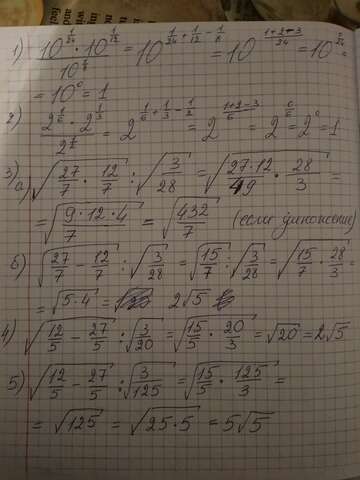 1) (10^(1/24) · 10^(1/12)) / 10^(1/8) = 10^(1/24 + 1/12 − 1/8) = 10^((1+2−3)/24) = 10^(0/24) =
= 10^0 = 1
2) (2^(1/6) · 2^(1/3)) / 2^(1/2) = 2^(1/6 + 1/3 − 1/2) = 2^((1+2−3)/6) = 2^(0/6) = 2^0 = 1
3) а) √(27/7 · 12/7) : √(3/28) = √((27·12)/49 · 28/3) =
= √((9·12·4)/7) = √(432/7) (если умножение)
б) √(27/7 − 12/7) : √(3/28) = √(15/7) : √(3/28) = √(15/7 · 28/3) =
= √(5·4) = 2√5
4) √(12/5 − 27/5) : √(3/20) = √(15/5 · 20/3) = √20 = 2√5
5) √(12/5 − 27/5) : √(3/125) = √(15/5 · 125/3) =
= √125 = √(25·5) = 5√5